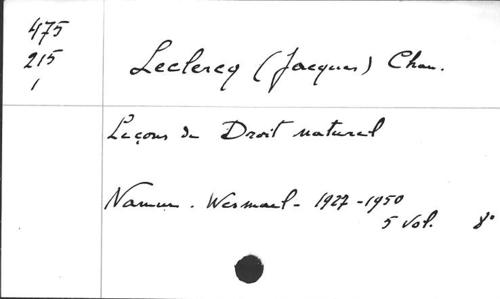 475
215
1
Leclercq (Jacques) Chan.
Leçons de Droit naturel
Namur. Wesmael - 1927-1950
5 vol. 8°